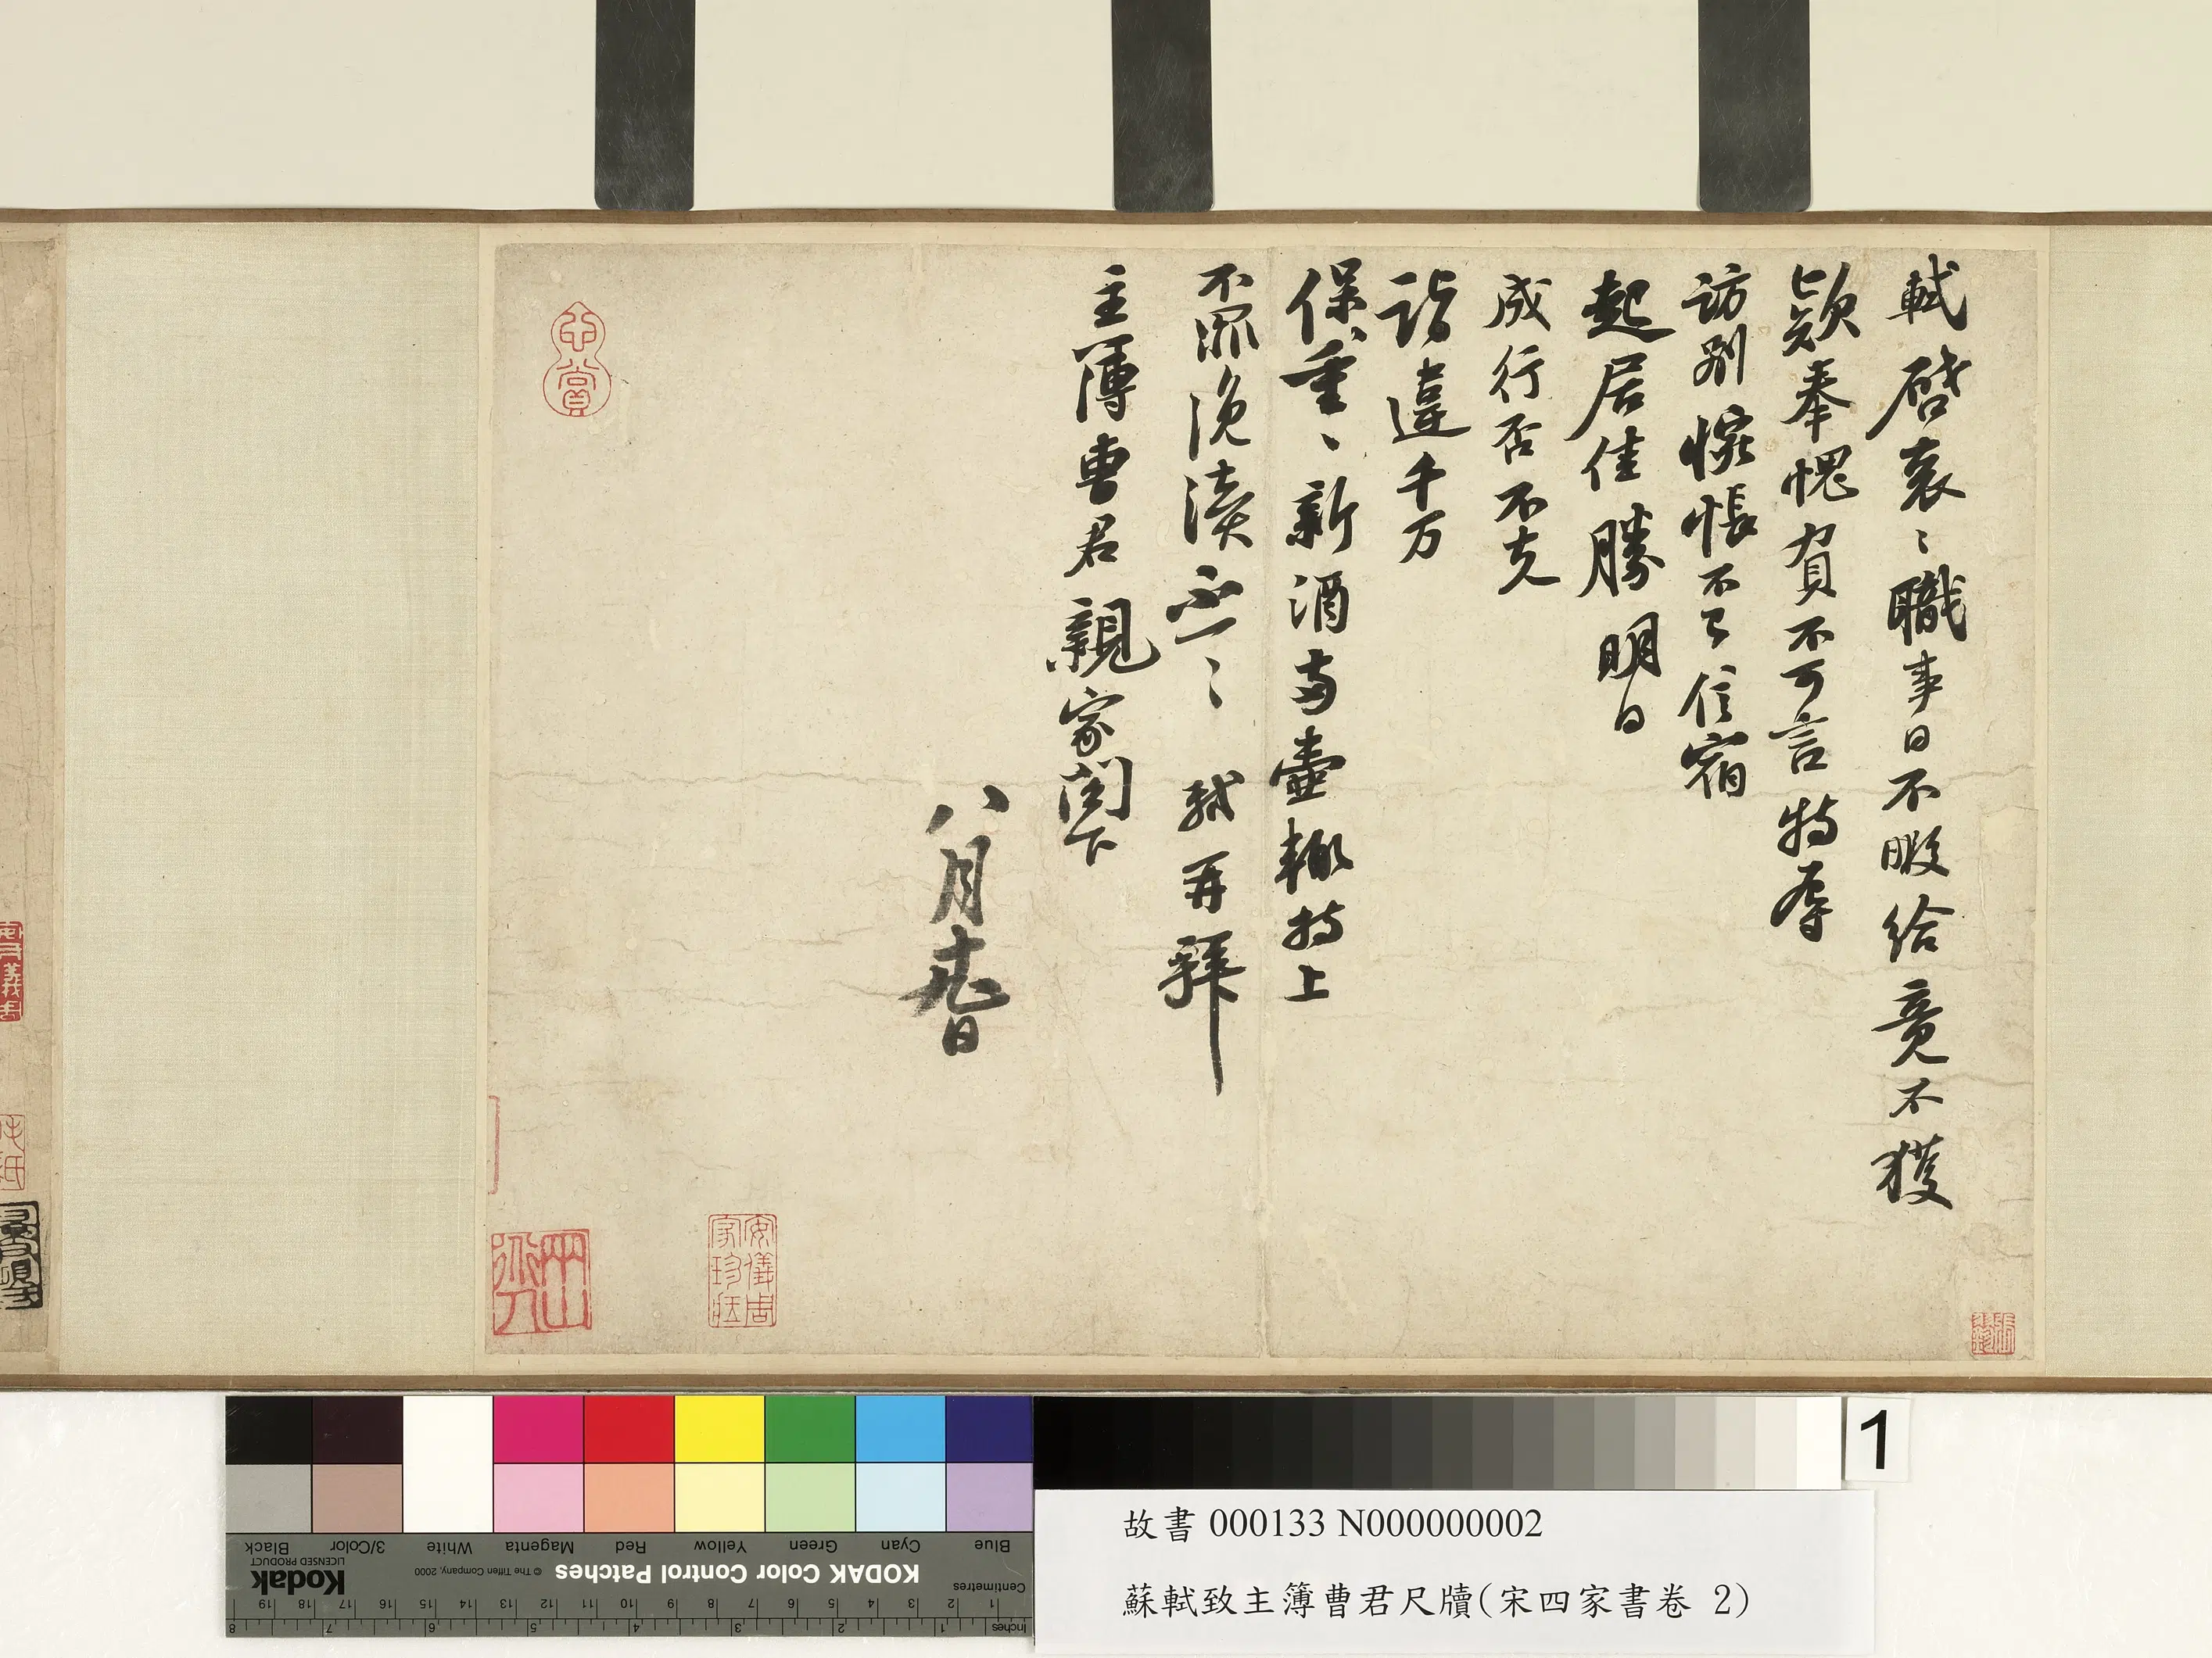 軾啓衮〻職事日不暇給竟不獲
欵奉愧負不可言特辱
訪別惋悵不已信宿
起居佳勝明日
成行否不克
詣違千万
保重〻新酒兩壺輙持上
不罪浼瀆不一〻 軾再拜
主簿曹君親家閤下
八月十九日
心賞
安儀周家珍藏
1
Black 3/Color White Magenta Red Yellow Green Cyan Blue
Kodak
LICENSED PRODUCT
© The Tiffen Company, 2000
KODAK Color Control Patches
Centimetres
1 2 3 4 5 6 7 8 9 10 11 12 13 14 15 16 17 18 19
Inches 1 2 3 4 5 6 7 8
故書 000133 N000000002
蘇軾致主簿曹君尺牘(宋四家書卷 2)